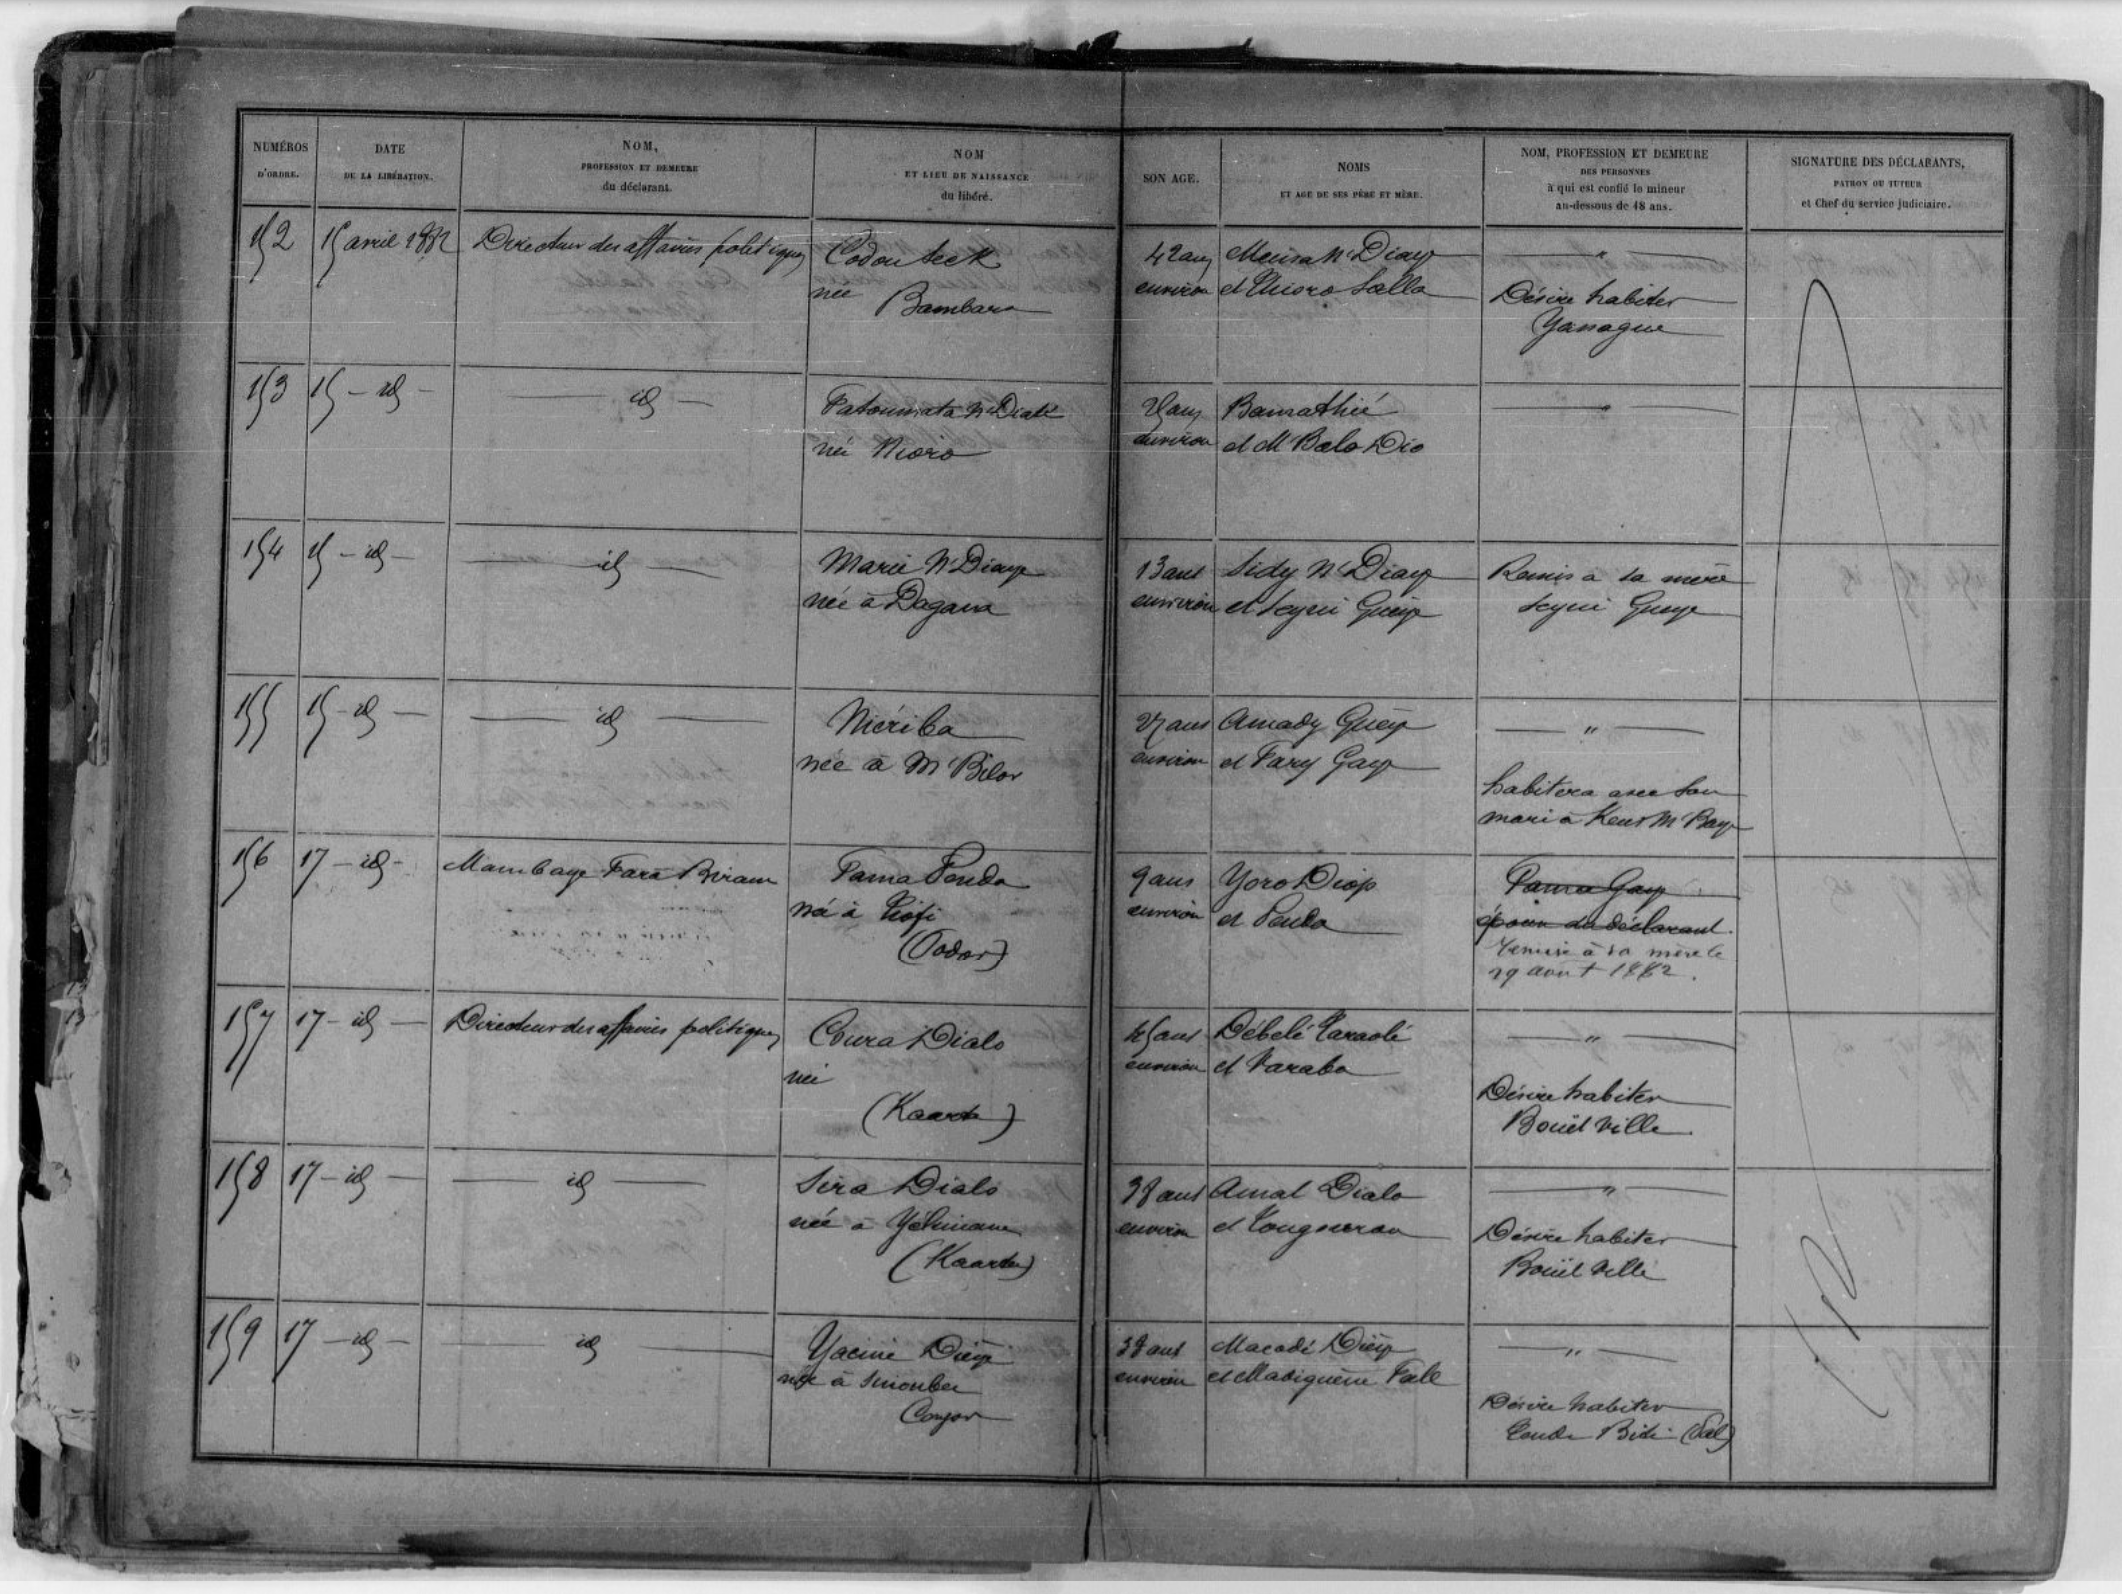 NUMÉROS
D'ORDRE.
DATE
DE LA LIBÉRATION.
NOM,
PROFESSION ET DEMEURE
du déclarant.
NOM
ET LIEU DE NAISSANCE
du libéré.
SON AGE.
NOMS
ET AGE DE SES PÈRE ET MÈRE.
NOM, PROFESSION ET DEMEURE
DES PERSONNES
à qui est confié le mineur
au-dessous de 18 ans.
SIGNATURE DES DÉCLARANTS,
PATRON OU TUTEUR
et Chef du service judiciaire.
152
15 avril 1882
Directeur des affaires politiques
Codou Seck
née
Bambara
42 ans
environ
Moussa N'Diaye
et Thioro Salla
"
Désire habiter
153
15 - id -
id -
Fatoumata N'Diaté
née Nioro
ans
environ
et M'Balo Dio
"
154
15 - id -
id
Marie N'Diaye
née à Dagana
13 ans
environ
Sidy N'Diaye
et Seyni Guèye
Remis à sa mère
Seyni Gueye
155
15 - id -
id
Niériba
née à M'Bilor
27 ans
environ
Amady Guèye
et Fary Gaye
"
habitera avec son
mari à Keur M'Baye
156
17 - id -
Mambaye Fara Biram
Penda
née à
(Podor)
9 ans
environ
Yoro Diop
et Penda
Gaye
épouse du déclarant.
remise à sa mère le
29 août 1882.
157
17 - id -
Directeur des affaires politiques
Coura Dialo
née
(Kaarta)
45 ans
environ
Débélé Taraolé
et Naraba
"
Désire habiter
Bouët Ville
158
17 - id -
id
Sira Dialo
née à Yélimané
(Kaarta)
38 ans
environ
Amat Dialo
et
"
Désire habiter
Bouët Ville
159
17 - id -
id
Yacine Dièye
née à
Cayor
38 ans
environ
Macodé Dièye
et Madiguène Fall
"
Désire habiter